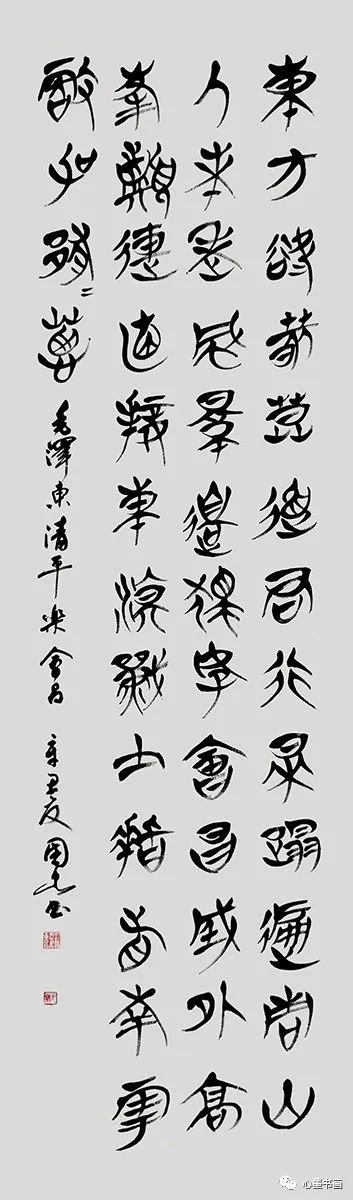 東方欲曉莫道君行早踏遍青山
人未老風景邊獨好會昌城外高
峰顛連直接東溟戰士指看南粵
更加鬱二蔥
毛澤東清平樂會昌 辛丑夏國書
心垂书画